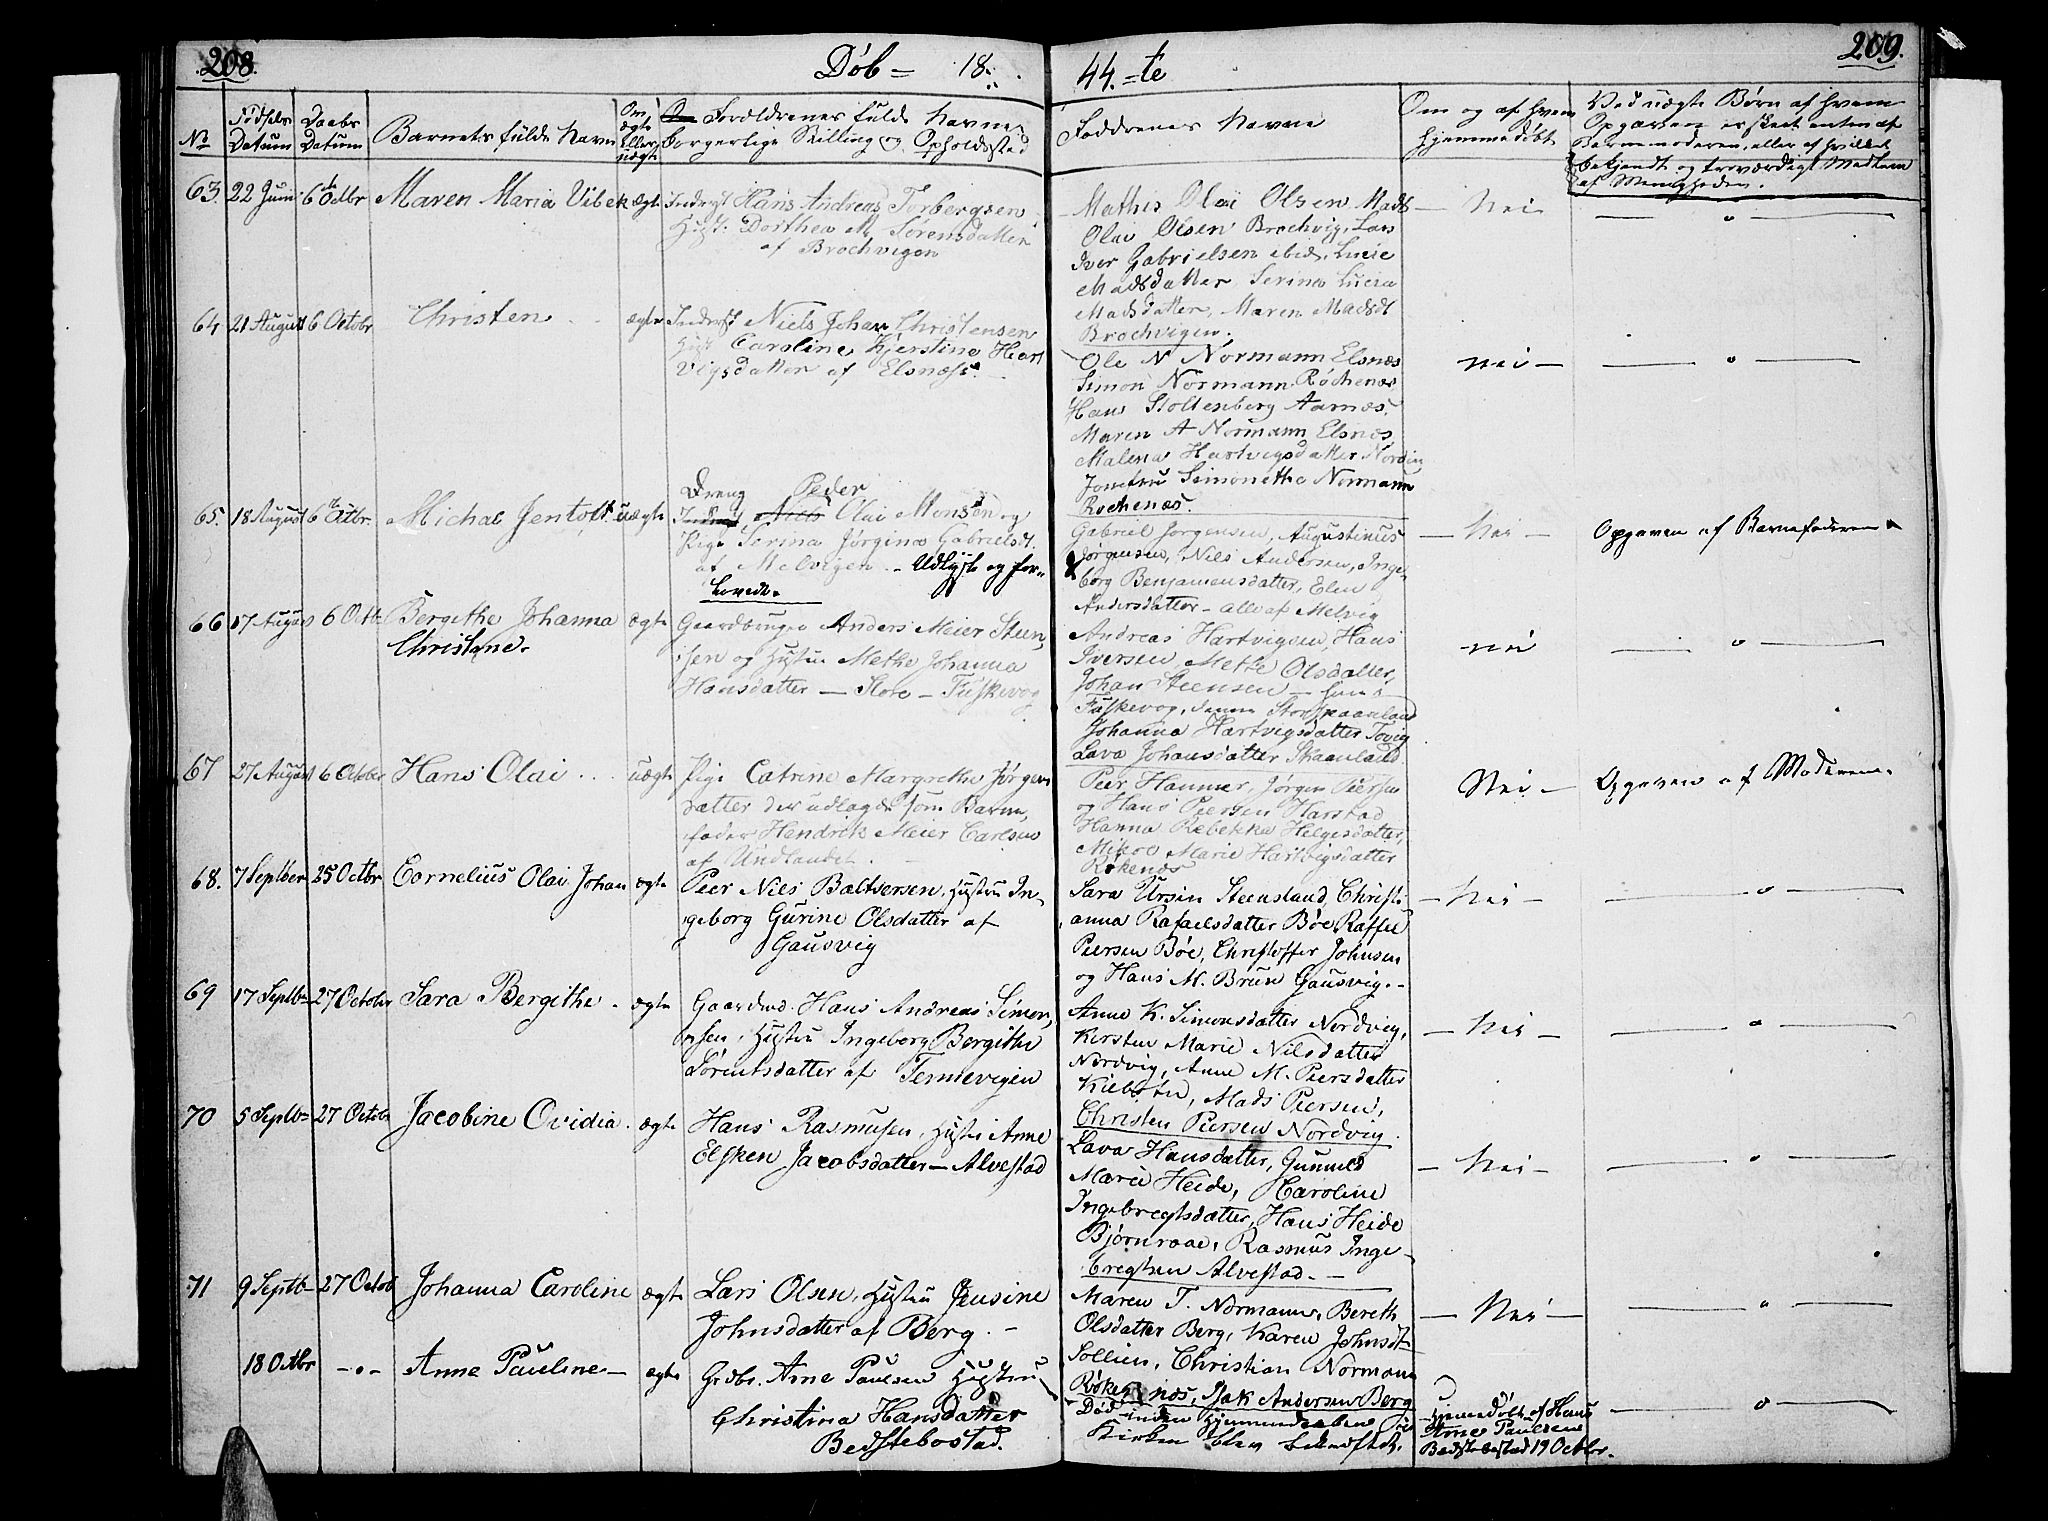 208. Döb = 18
44. = te 209.
No Födsels Datum Daabs Datum Barnets fulde Navn Om ægte eller uægte Forældrenes fulde Navne, borgerlige Stilling og Opholdssted
Faddrenes Navne Om og af hvem hjemmedöbt Ved uægte Börn af hvem
Opgaven er skeet enten af
Barnemoderen, eller af hvilket
bekjendt og troværdigt Medlem
af Menigheden.
63. 22 Juni 6te Octbr Maren Maria Vibek ægte Inderst Hans Andreas Torbergsen
Hust. Dorthea M. Sörensdatter
af Brochvigen
Mathis Olai Olsen Mads — Nei — "
Olai Olsen Brochvig, Lars
Iver Gabrielsen ibid, Lucie
Madsdatter, Serina Lucia
Madsdatter, Maren Madsdt
Brochvigen.
64 21 August 6 Octobr Christen ægte Inderst Niels Johan Christensen
Hust Caroline Kjerstina Hart
vigsdatter af Elsnæs.
Ole N Normann Elsnæs Nei — "
Simon Normann Röchenæs
Hans Stoltenberg Aarnæs.
Maren A Normann Elsnæs
Malena Hartvigsdatter Nordvig
Jomfru Simonetha Normann
Röchenæs.
65. 18 August 6te Octbr. Michal Jentoft uægte Dreng Peder
Olai Monsen og
Pige Serina Jørgina Gabrielsdt.
af Melvigen. – Udlyste og for-
lovede.
Gabriel Jorgensen, Augustinus — Nei — Opgaven af Barnefaderen
Jörgensen, Nils Andersen, Inge-
borg Benjamensdatter, Elen
Andersdatter – alle af Melvig
66 17 August 6 Octb Bergithe Johanna ægte Gaardbruger Anders Meier Steen-
Christane.
sen og Hustru Methe Johanna
Hansdatter — Store – Fuskevog
Andreas Hartvigsen, Hans Nei — "
Iversen, Mette Olsdatter,
Johan Steensen —
Fuskevog,
Johanna Hartvigsdatter Tovig
Lava Johansdatter Skaanland
67 27 August 6 October Hans Olai uægte Pige Catrine Margrethe Jörgens
datter der udlagde som Barne-
fader Hendrik Meier Carlsen
af Undlandet.
Peer Hammer, Jörgen Piersen Nei — Opgaven af Moderen.
og Hans Piersen Harstad
Hanna Rebekka Helgesdatter,
Marie Hartvigsdatter
Rökenæs
68. 7 Septber 25 Octbr Cornelius Olai Johan ægte Peer Nils Baltsersen, Hustru In-
geborg Gurine Olsdatter af
Gausvig
Sara Ursin Steensland, Christi- — Nei — "
anna Rafaelsdatter Böe, Raffel
Piersen Böe, Christoffer Johnsen
og Hans M. Bruun Gausvig. –
69 17 Septb 27 Octobr Sara Bergithe. ægte Gaardmd. Hans Andreas Simon-
sen, Hustru Ingeborg Bergithe
Lorentsdatter af Tennevigen
Anne K. Simonsdatter Nordvig, — Nei — "
Kirsten Marie Nilsdatter
Nordvig, Anne M. Piersdatter
Kilbotn, Mads Piersen,
Christen Piersen Nordvig.
70 5 Septb 27 Octobr Jacobine Ovidia. ægte Hans Rasmusen, Hustru Anne
Elsken Jacobsdatter – Alvestad
Lava Hansdatter, Gunneld — Nei — "
Marie Heide, Karoline
Ingebregtsdatter, Hans Heide
Björnraae, Rasmus Inge-
bregtsen Alvestad. –
71 9 Septb 27 Octob Johanna Caroline ægte Lars Olsen, Hustru Jensine
Johnsdatter af Berg. –
Maren T. Normann, Bereth — Nei — "
Olsdatter Berg, Karen Johnsdt
Sollien, Christian Normann
Rökenæs, Isak Andersen Berg
18 Octbr – " – Anne Pauline — ægte Grdbr. Arne Paulsen Hustru
Christina Hansdatter
Bedstebostad.
Död inden Hjemmedaaben i
Kirken blev bekræftet.
Hjemmedöbt af Hans
Arne Paulsen
Bedstebostad 19 Octbr. — "